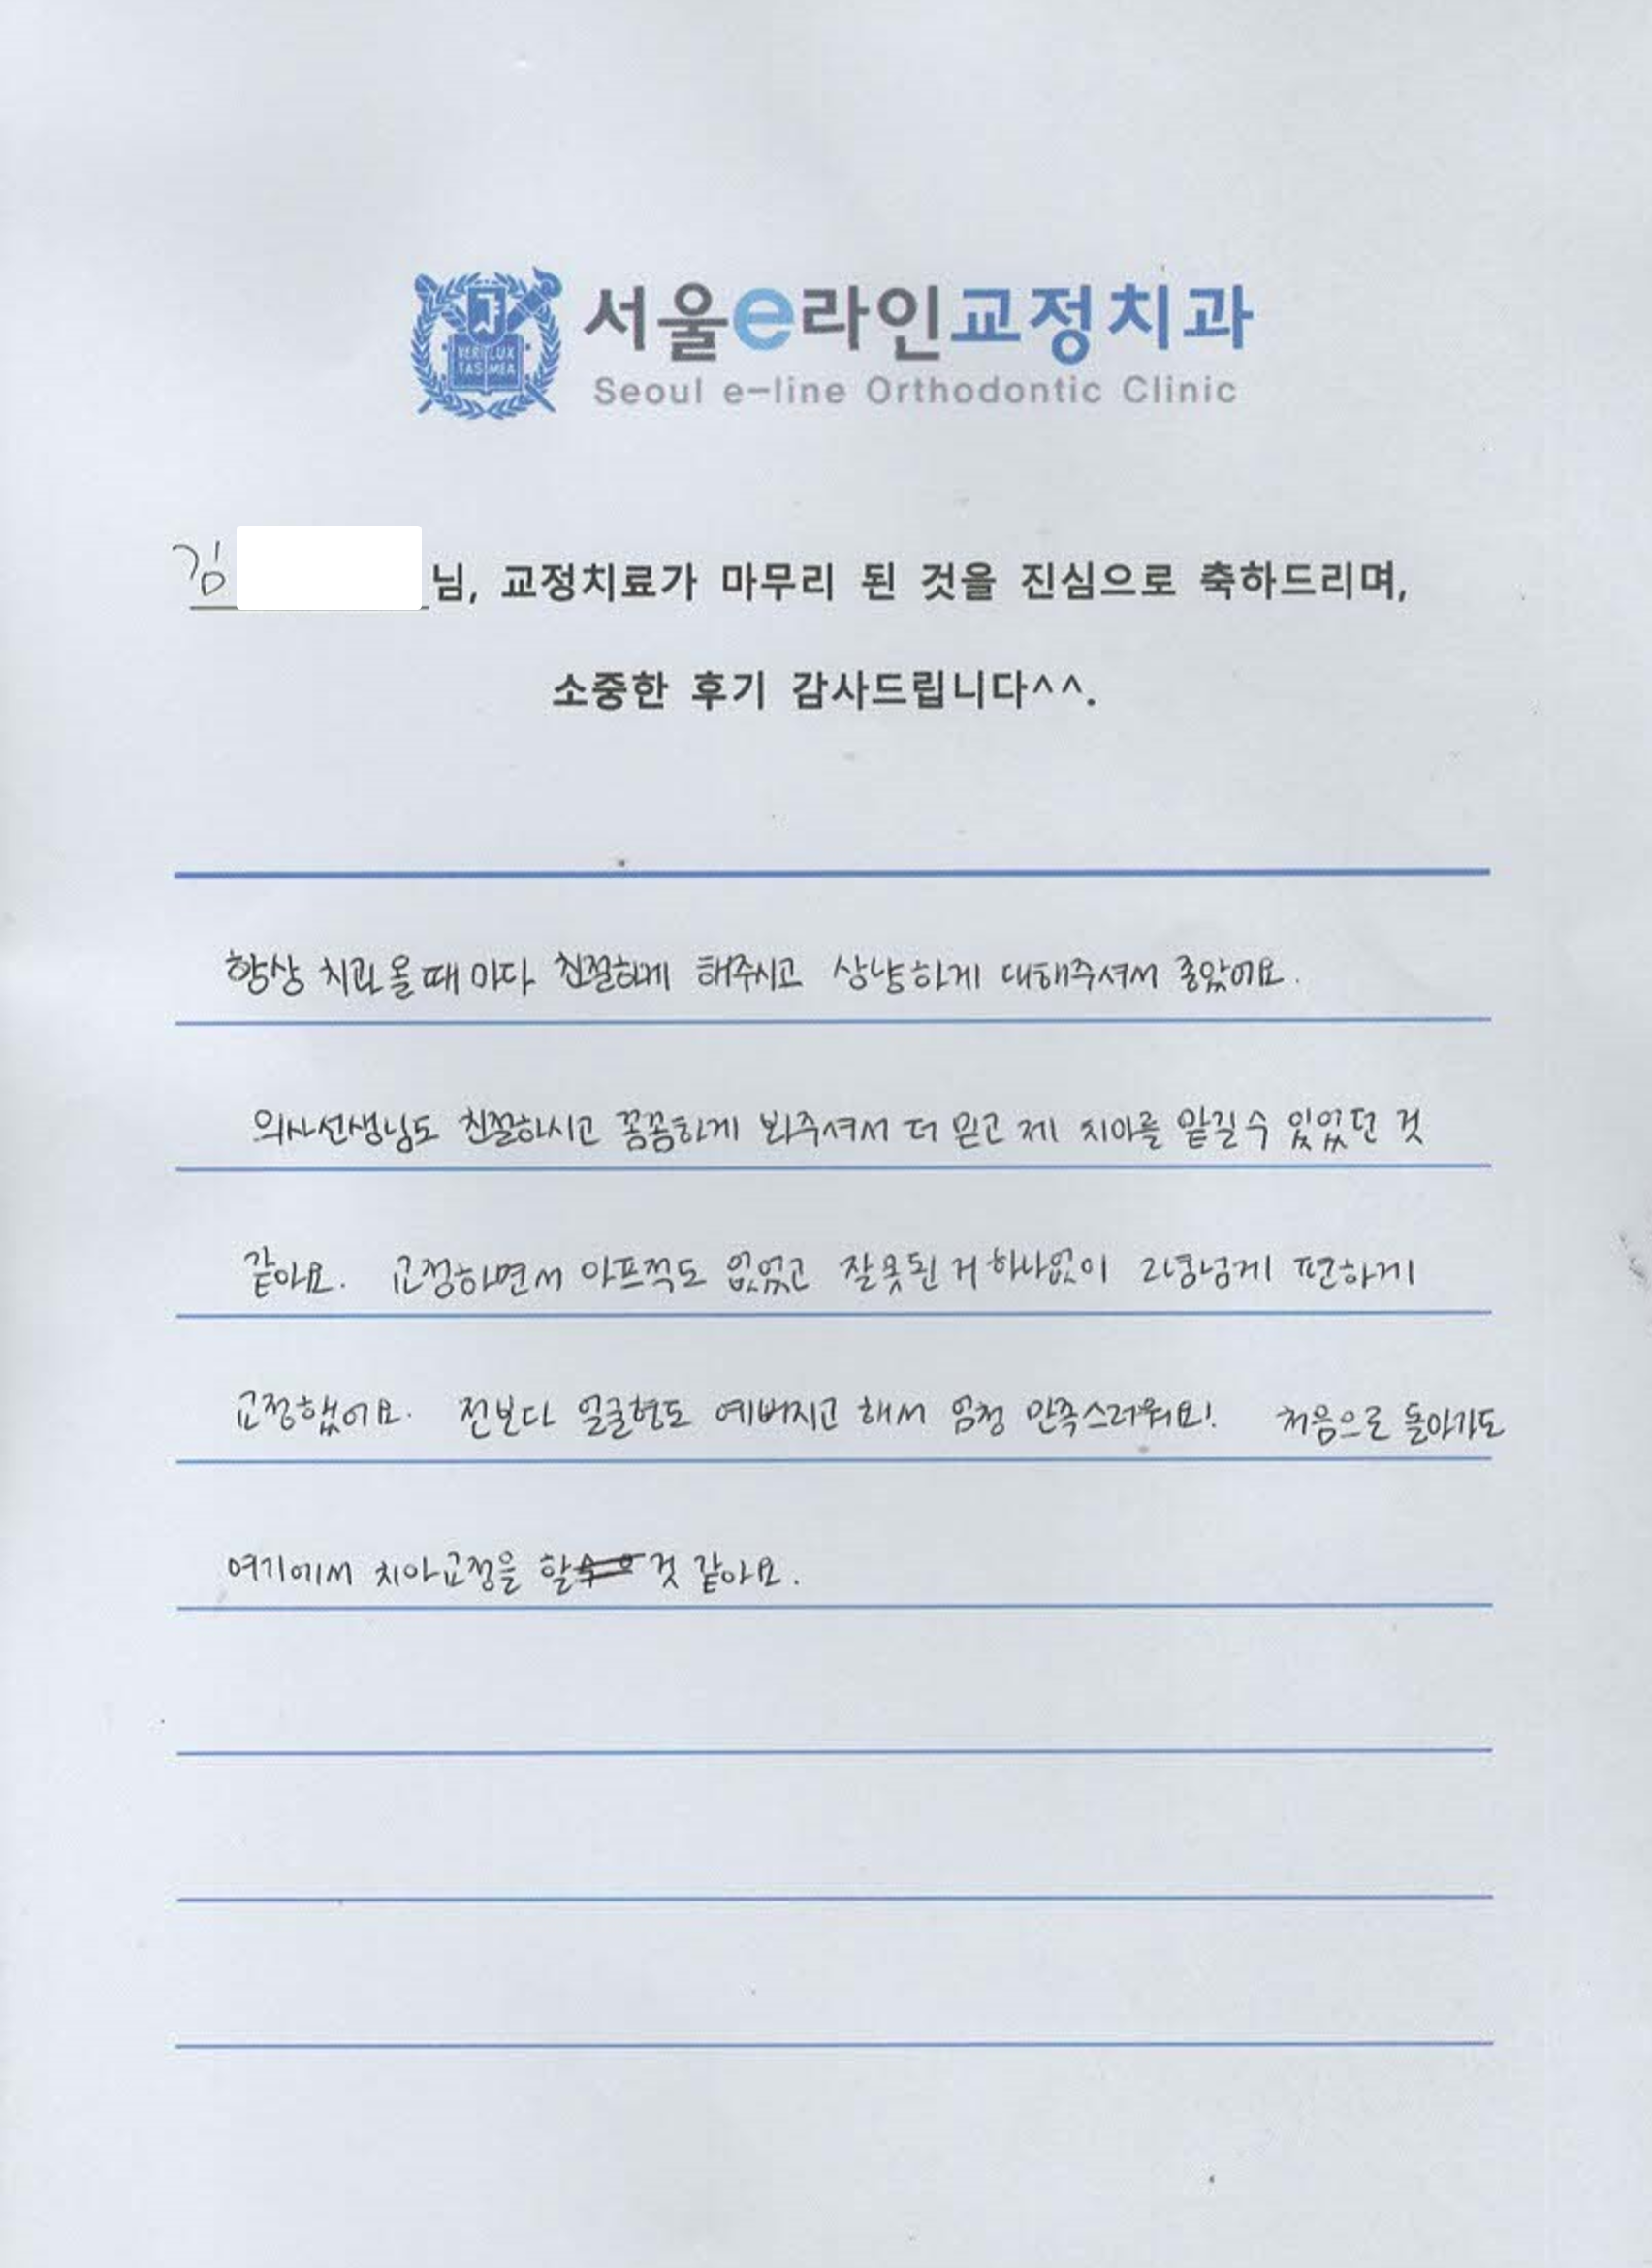 VERI LUX
TAS MEA
서울e라인교정치과
Seoul e-line Orthodontic Clinic
김 님, 교정치료가 마무리 된 것을 진심으로 축하드리며,
소중한 후기 감사드립니다^^.
항상 치과 올 때 마다 친절하게 해주시고 상냥하게 대해주셔서 좋았어요.
의사선생님도 친절하시고 꼼꼼하게 봐주셔서 더 믿고 제 치아를 맡길 수 있었던 것
같아요. 교정하면서 아프적도 없었고 잘못된 거 하나없이 편하게
교정했어요. 전보다 얼굴형도 예뻐지고 해서 엄청 만족스러워요! 처음으로 돌아가도
여기에서 치아교정을 할 것 같아요.